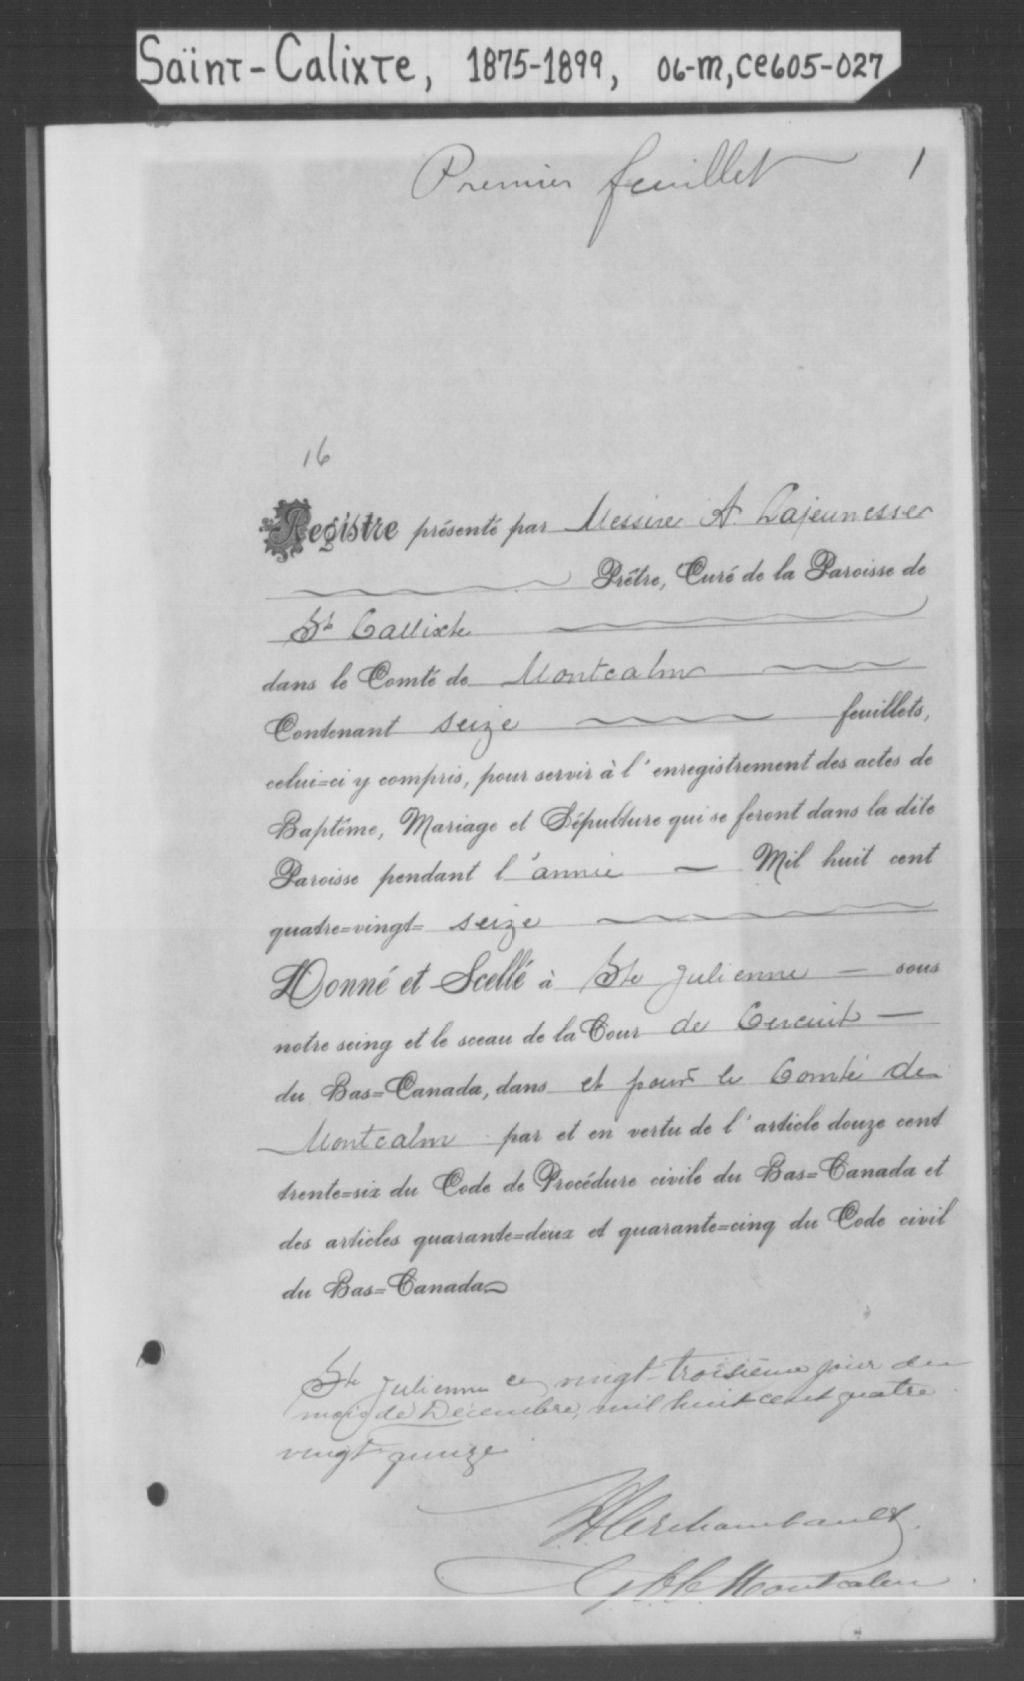 Saïnt-Calixte, 1875-1899, 06-M, CE605-027
Premier feuillet 1
16
Registre présenté par Messire A. Lajeunesse
Prêtre, Curé de la Paroisse de
St Callixte
dans le Comté de Montcalm
Contenant seize feuillets,
celui=ci y compris, pour servir à l'enregistrement des actes de
Baptême, Mariage et Sépulture qui se feront dans la dite
Paroisse pendant l'année — Mil huit cent
quatre=vingt= seize
Donné et Scellé à Ste Julienne — sous
notre seing et le sceau de la Cour de Circuit —
du Bas=Canada, dans et pour le Comté de
Montcalm par et en vertu de l'article douze cent
trente=six du Code de Procédure civile du Bas=Canada et
des articles quarante=deux et quarante=cinq du Code civil
du Bas=Canada
Ste Julienne ce vingt-troisième jour du
mois de Décembre, mil huit cent quatre
vingt quinze
Archambault
Montcalm